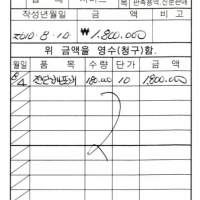 업 태 서비스 종목 판촉용역.신문판매
작성년월일 금 액 비 고
2010·8·10· ₩1,800,000
위 금액을 영수(청구)함.
월일 품 목 수량 단가 금 액
8/4 전단배포비 180,000 10 1,800,000